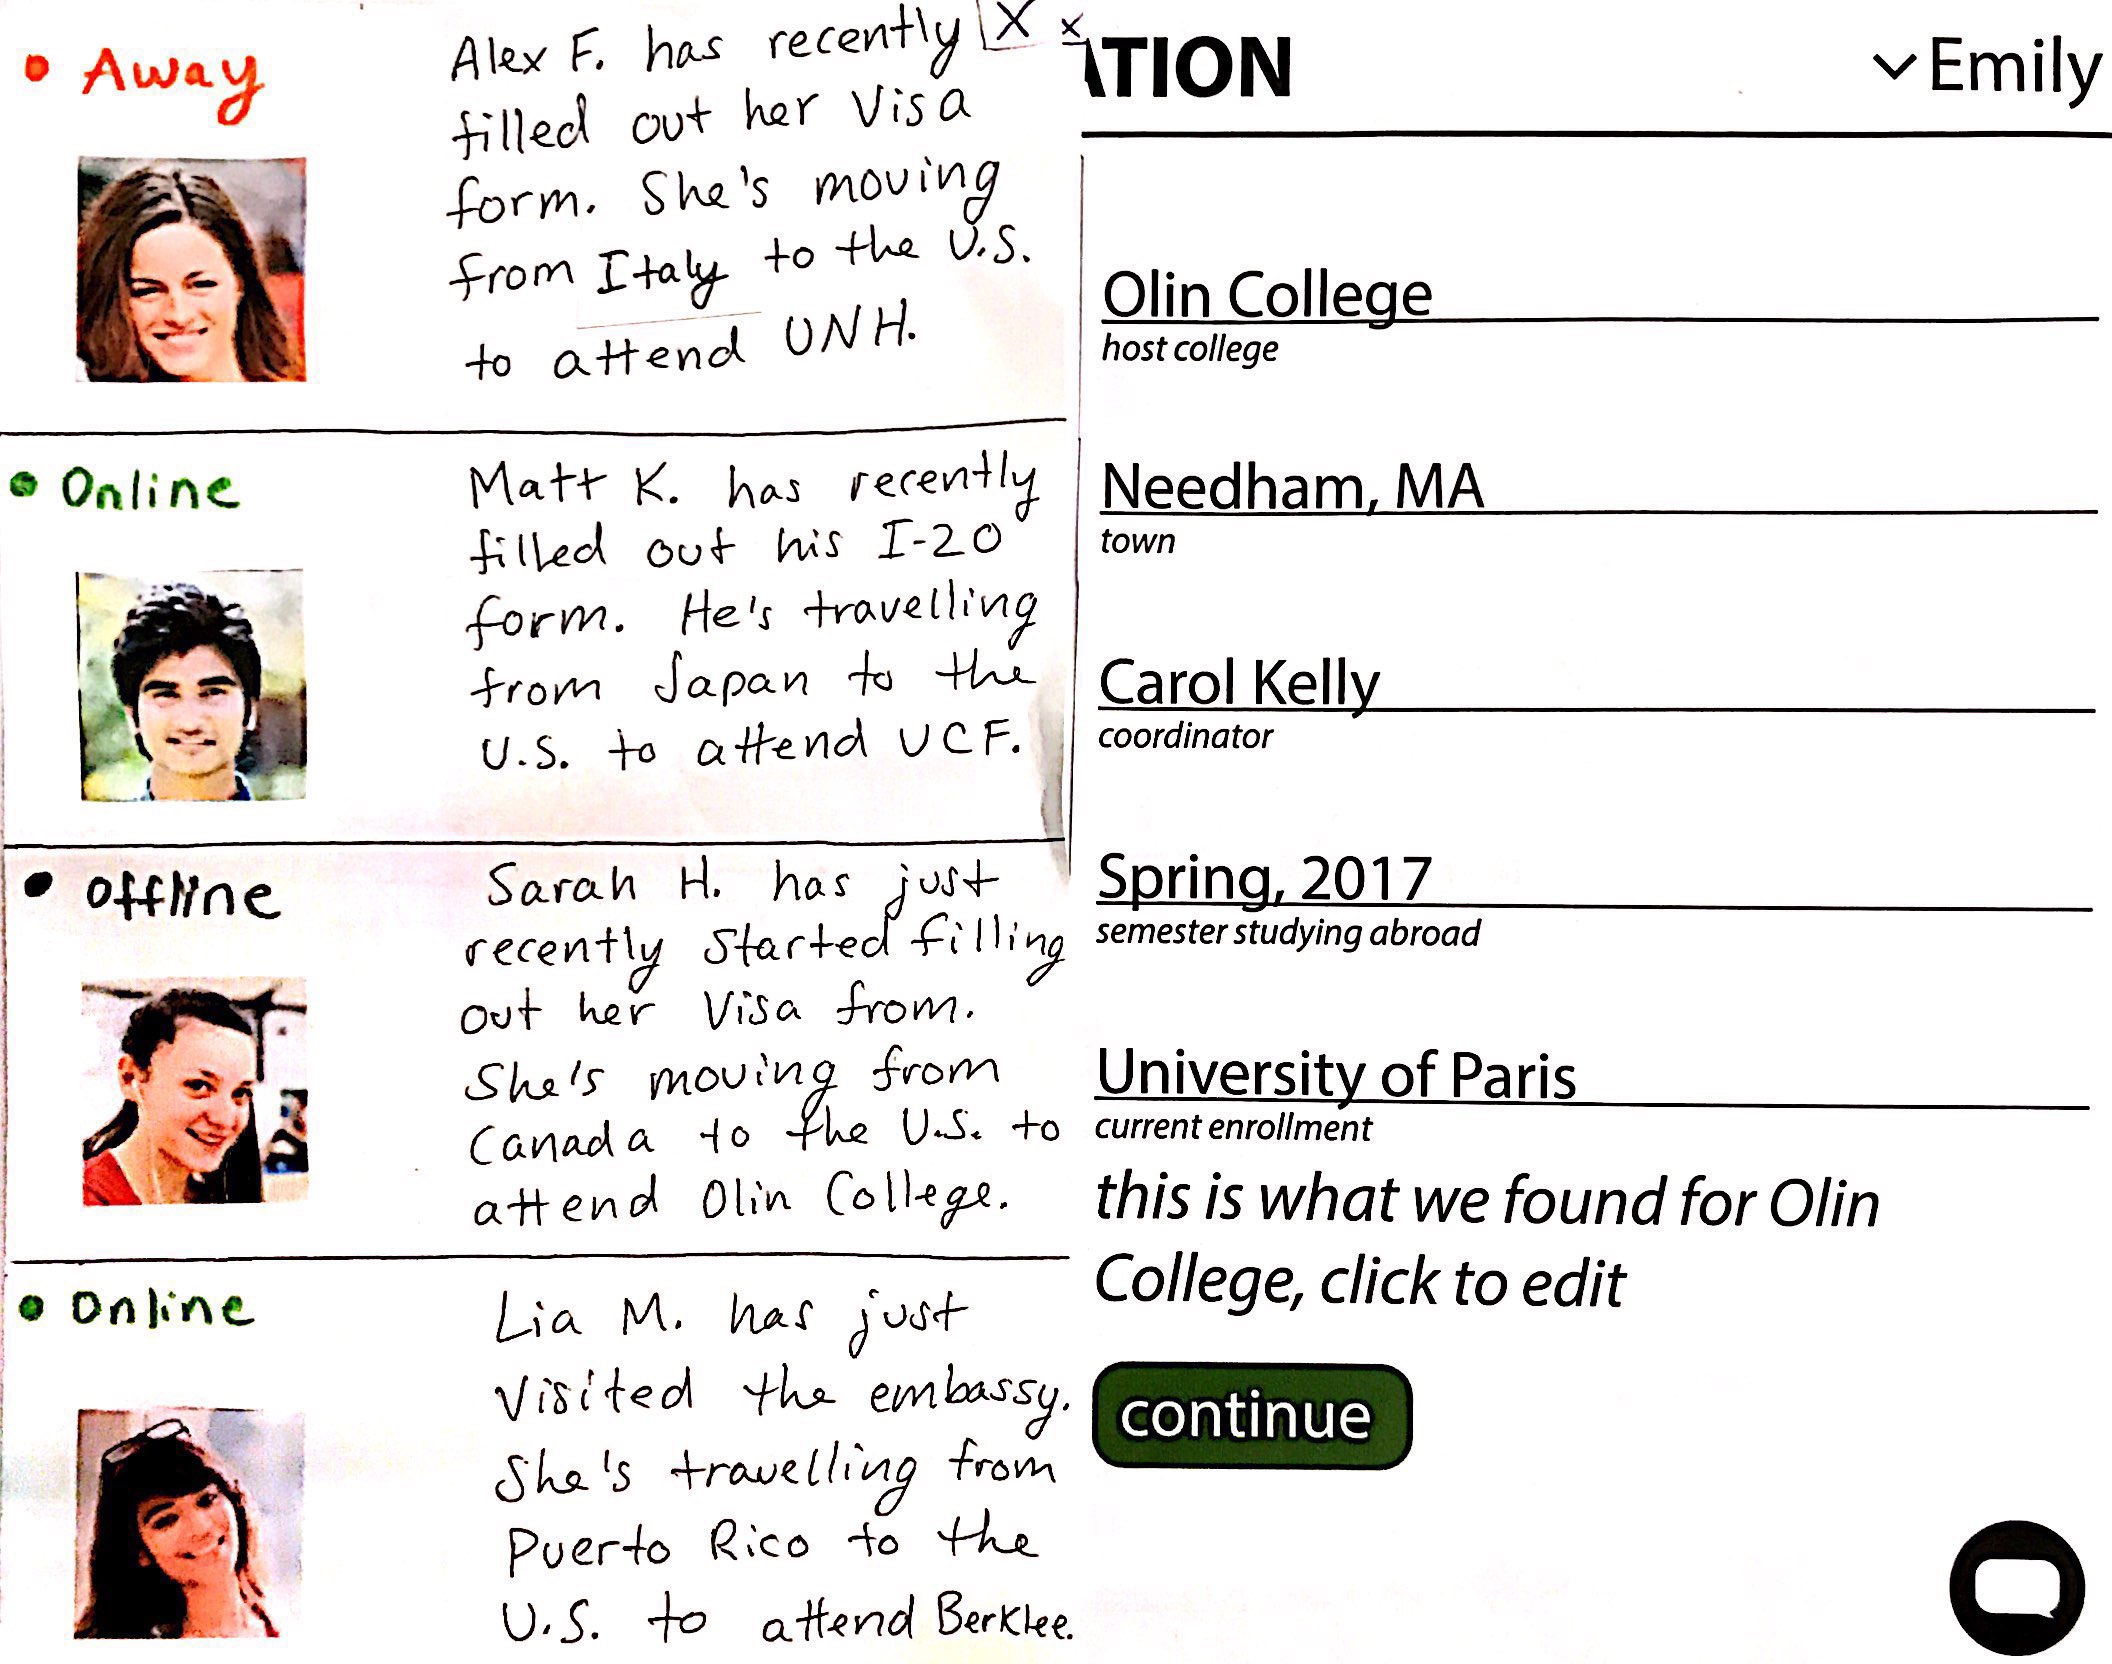 Away
Alex F. has recently
filled out her Visa
form. She's moving
from Italy to the U.S.
to attend UNH.
X
x
Online
Matt K. has recently
filled out his I-20
form. He's travelling
from Japan to the
U.S. to attend UCF.
Offline
Sarah H. has just
recently started filling
out her Visa from.
She's moving from
Canada to the U.S. to
attend Olin College.
Online
Lia M. has just
visited the embassy.
She's travelling from
Puerto Rico to the
U.S. to attend Berklee.
ATION
Emily
Olin College
host college
Needham, MA
town
Carol Kelly
coordinator
Spring, 2017
semester studying abroad
University of Paris
current enrollment
this is what we found for Olin
College, click to edit
continue